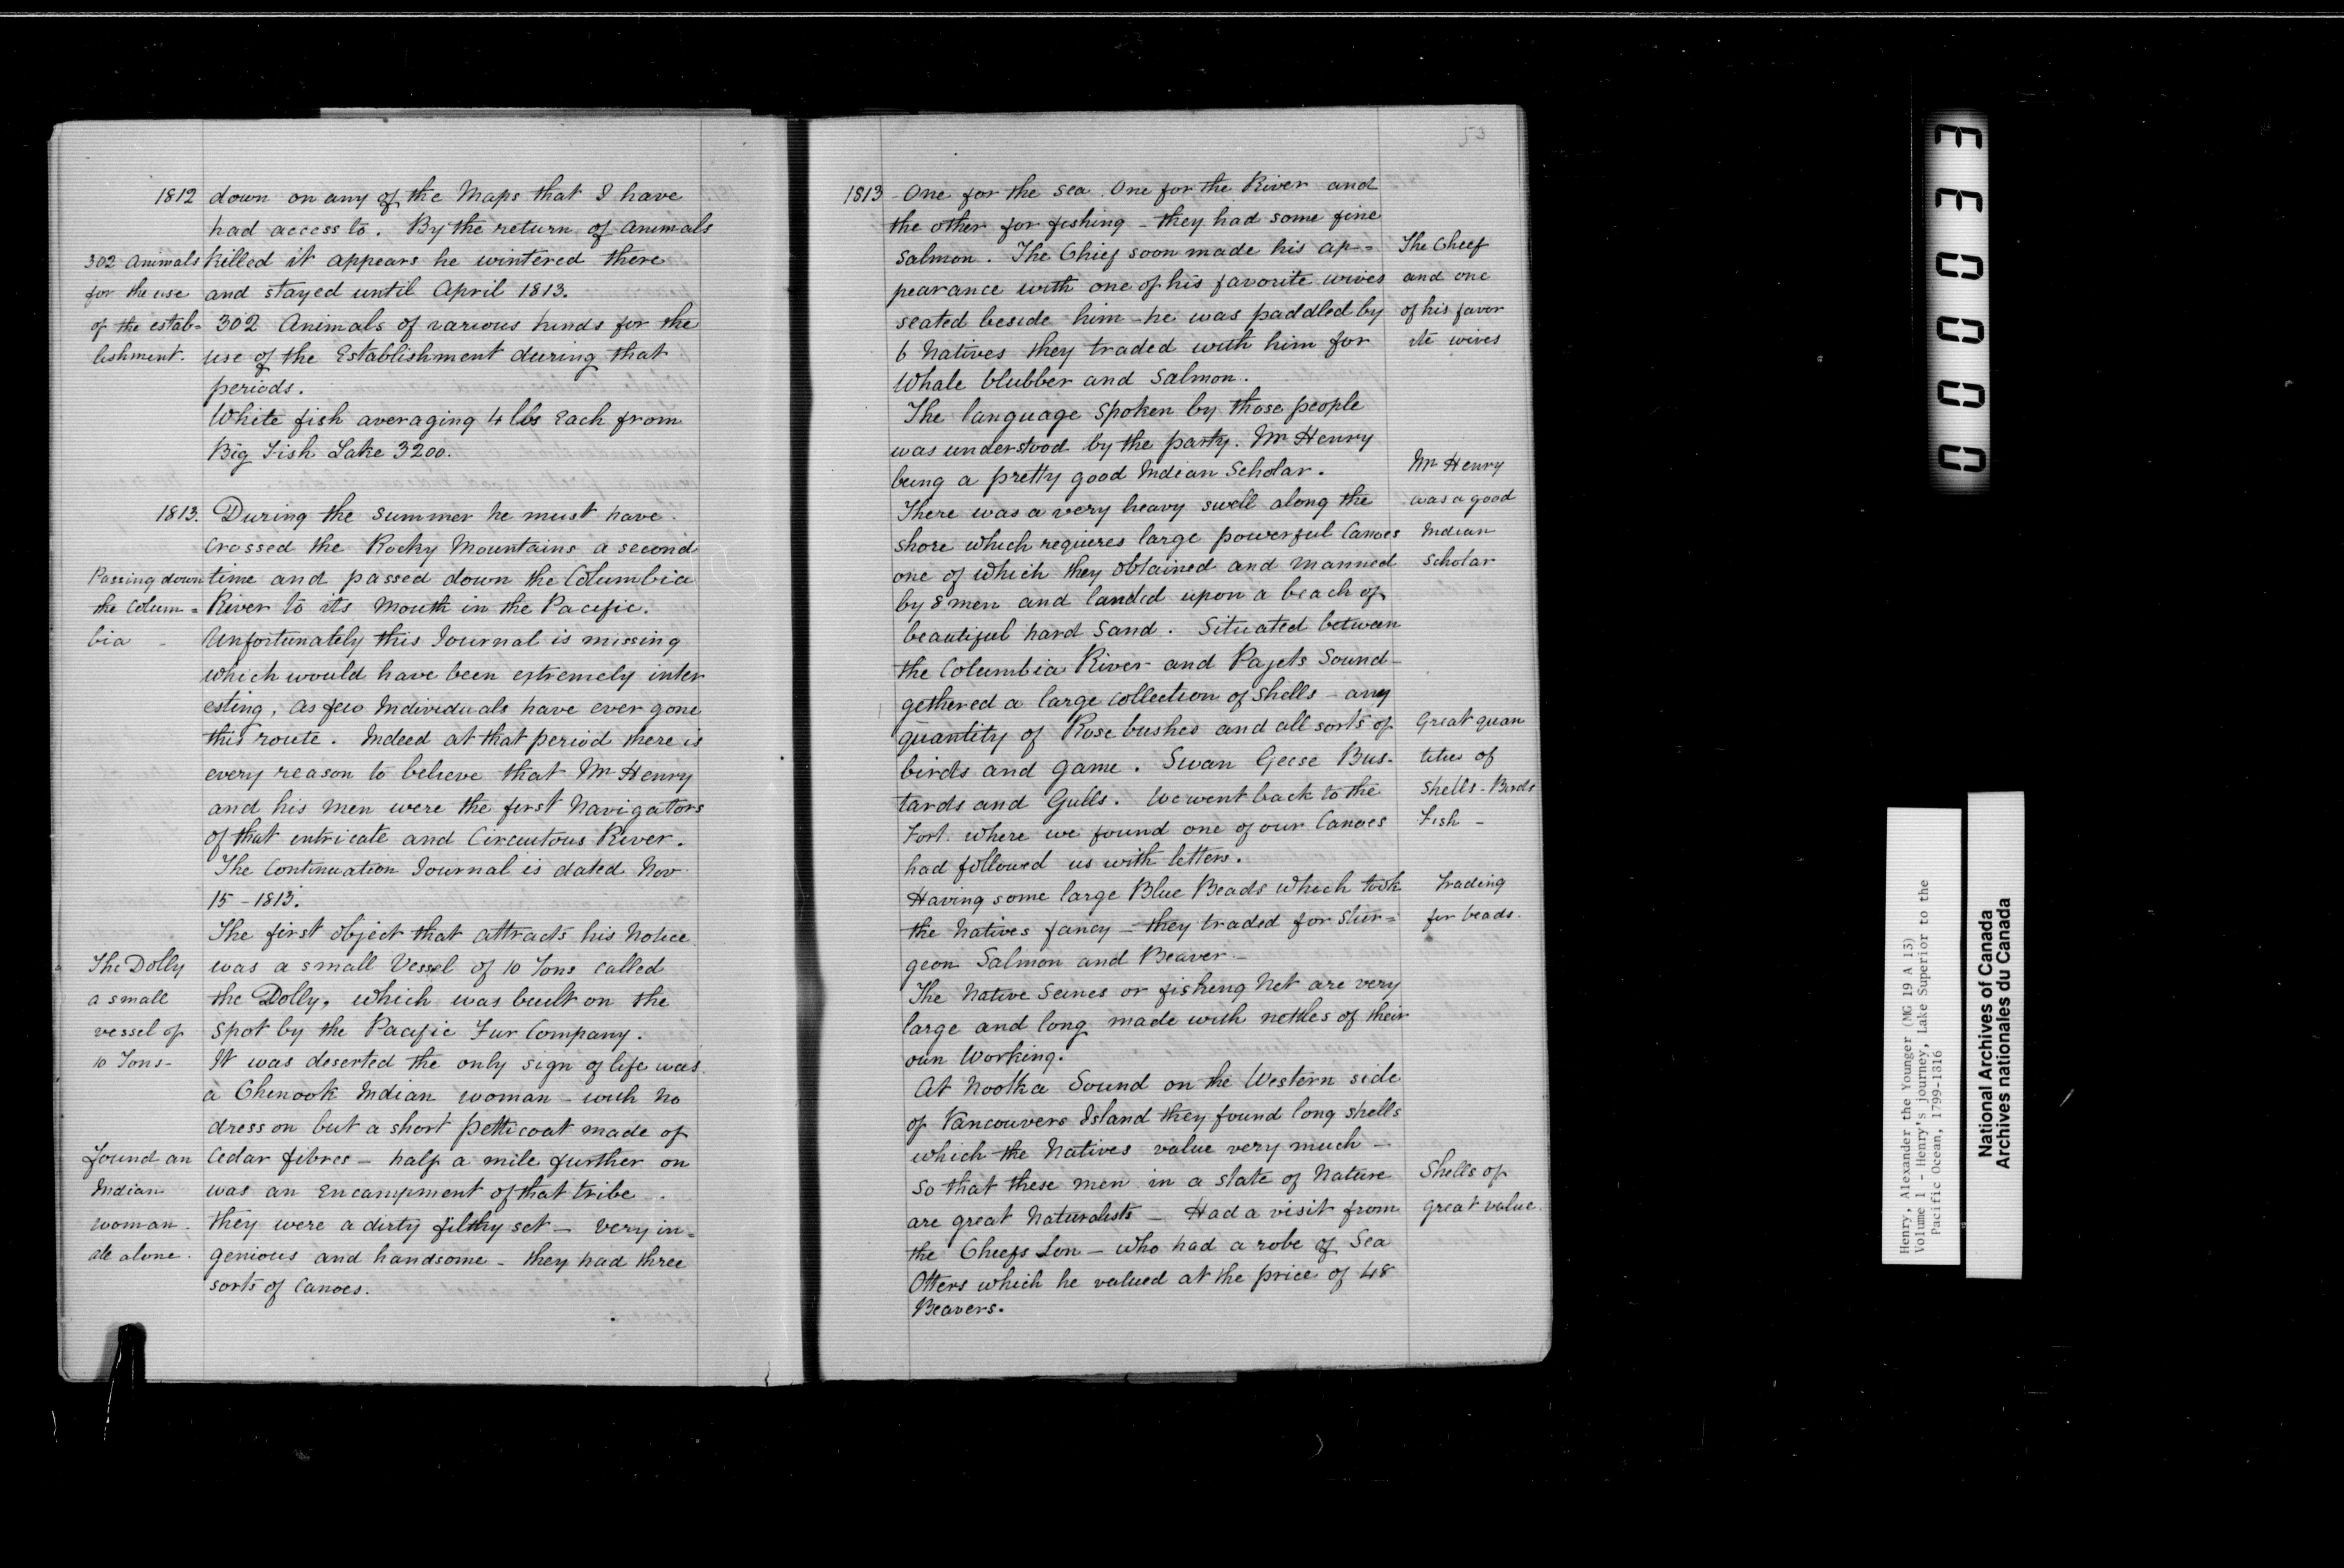 1812 down on any of the Maps that I have
had access to. By the return of Animals
302 Animals killed it appears he wintered there
for the use and stayed until April 1813.
of the estab= 302 Animals of various kinds for the
lishment. use of the Establishment during that
periods.
White fish averaging 4 lbs Each from
Big Fish Lake 3200.
1813. During the Summer he must have
crossed the Rocky Mountains a second
Passing down time and passed down the Columbia
the Colum= River to its Mouth in the Pacific.
bia - Unfortunately this Journal is missing
which would have been extremely inter
esting, as few Individuals have ever gone
this route. Indeed at that period there is
every reason to believe that Mr Henry
and his men were the first Navigators
of that intricate and Circuitous River.
The Continuation Journal is dated Nov
15 - 1813.
The first object that attracts his Notice
The Dolly was a small Vessel of 10 Tons called
a small the Dolly, which was built on the
vessel of spot by the Pacific Fur Company.
10 Tons - It was deserted the only sign of life was
a Chenook Indian woman - with no
dress on but a short petticoat made of
found an Cedar fibres - half a mile further on
Indian was an Encampment of that tribe -
woman they were a dirty filthy set - very in=
all alone. genious and handsome - they had three
sorts of Canoes.
53
1813 One for the sea. One for the River and
the other for fishing - they had some fine
Salmon. The Chief soon made his ap-= The Cheef
pearance with one of his favorite wives and one
seated beside him - he was paddled by of his favor
6 Natives they traded with him for ite wives
Whale blubber and Salmon.
The language spoken by those people
was understood by the party. Mr Henry
being a pretty good Indian Scholar. Mr Henry
There was a very heavy swell along the was a good
shore which requires large powerful Canoes Indian
one of which they obtained and manned Scholar
by 8 men and landed upon a beach of
beautiful hard Sand. Situated between
the Columbia River and Pajets Sound -
gethered a large collection of Shells - any
quantity of Rose bushes and all sorts of Great quan
birds and game. Swan Geese Bus- tities of
tards and Gulls. We went back to the Shells - Birds
Fort. where we found one of our Canoes Fish -
had followed us with letters.
Having some large Blue Beads which took Trading
the Natives fancy - they traded for Stur= for beads.
geon Salmon and Beaver -
The Native Seines or fisheng Net are very
large and long made with nettles of their
own Working.
At Nootka Sound on the Western side
of Vancouvers Island they found long shells
which the Natives value very much -
So that these men in a state of Nature Shells of
are great Naturalists - Had a visit from great value.
the Cheefs Son - who had a robe of Sea
Otters which he valued at the price of 48
Beavers.
000033
Henry, Alexander the Younger (MG 19 A 13)
Volume 1 - Henry's journey, Lake Superior to the
Pacific Ocean, 1799-1816
National Archives of Canada
Archives nationales du Canada